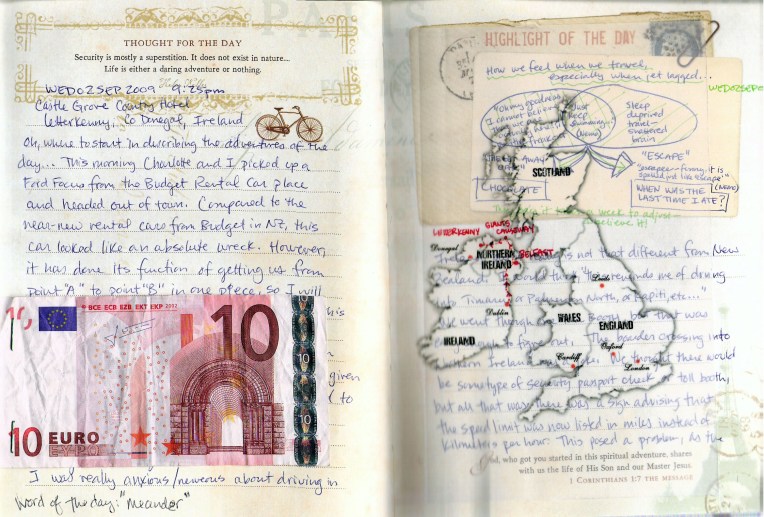 THOUGHT FOR THE DAY
Security is mostly a superstition. It does not exist in nature...
Life is either a daring adventure or nothing.
WED 02 SEP 2009 9:25pm
Castle Grove Country Hotel
Letterkenny, Co Donegal, Ireland
Oh, where to start in describing the adventures of the
day... This morning Charlotte and I picked up a
Ford Focus from the Budget Rental Car place
and headed out of town. Compared to the
near-new rental cars from Budget in NZ, this
car looked like an absolute wreck. However,
it has done its function of getting us from
point "A" to point "B" in one piece, so I will
his
given
to
BCE ECB EZB EKT EKP 2002
10
10 EURO
10
I was really anxious/nervous about driving in
word of the day: "meander"
HIGHLIGHT OF THE DAY
How we feel when we travel,
especially when jet lagged...
WED 02 SEP
"Oh my goodness
I cannot believe
Just
keep
swimming..."
(Nemo)
Sleep
deprived
travel-
shattered
brain
"ESCAPE"
CHOCOLATE
WHEN WAS THE
LAST TIME I ATE?
(NEMO)
SCOTLAND
LETTERKENNY
GIANTS CAUSEWAY
BELFAST
Donegal
NORTHERN
IRELAND
Dublin
IRELAND
WALES
ENGLAND
Leeds
Cardiff
Oxford
London
is not that different from New
remind me of driving
into Timaru or Palmerston North, or Kapiti, etc..."
went through
Booth, but that was
to figure out. The boarder crossing into
Ireland
We thought there would
be some type of security passport check or toll booth,
but all that was there was a sign advising that
the speed limit was now listed in miles instead of
kilometers per hour. This posed a problem, as the
God, who got you started in this spiritual adventure, shares
with us the life of His Son and our Master Jesus.
1 CORINTHIANS 1:7 THE MESSAGE